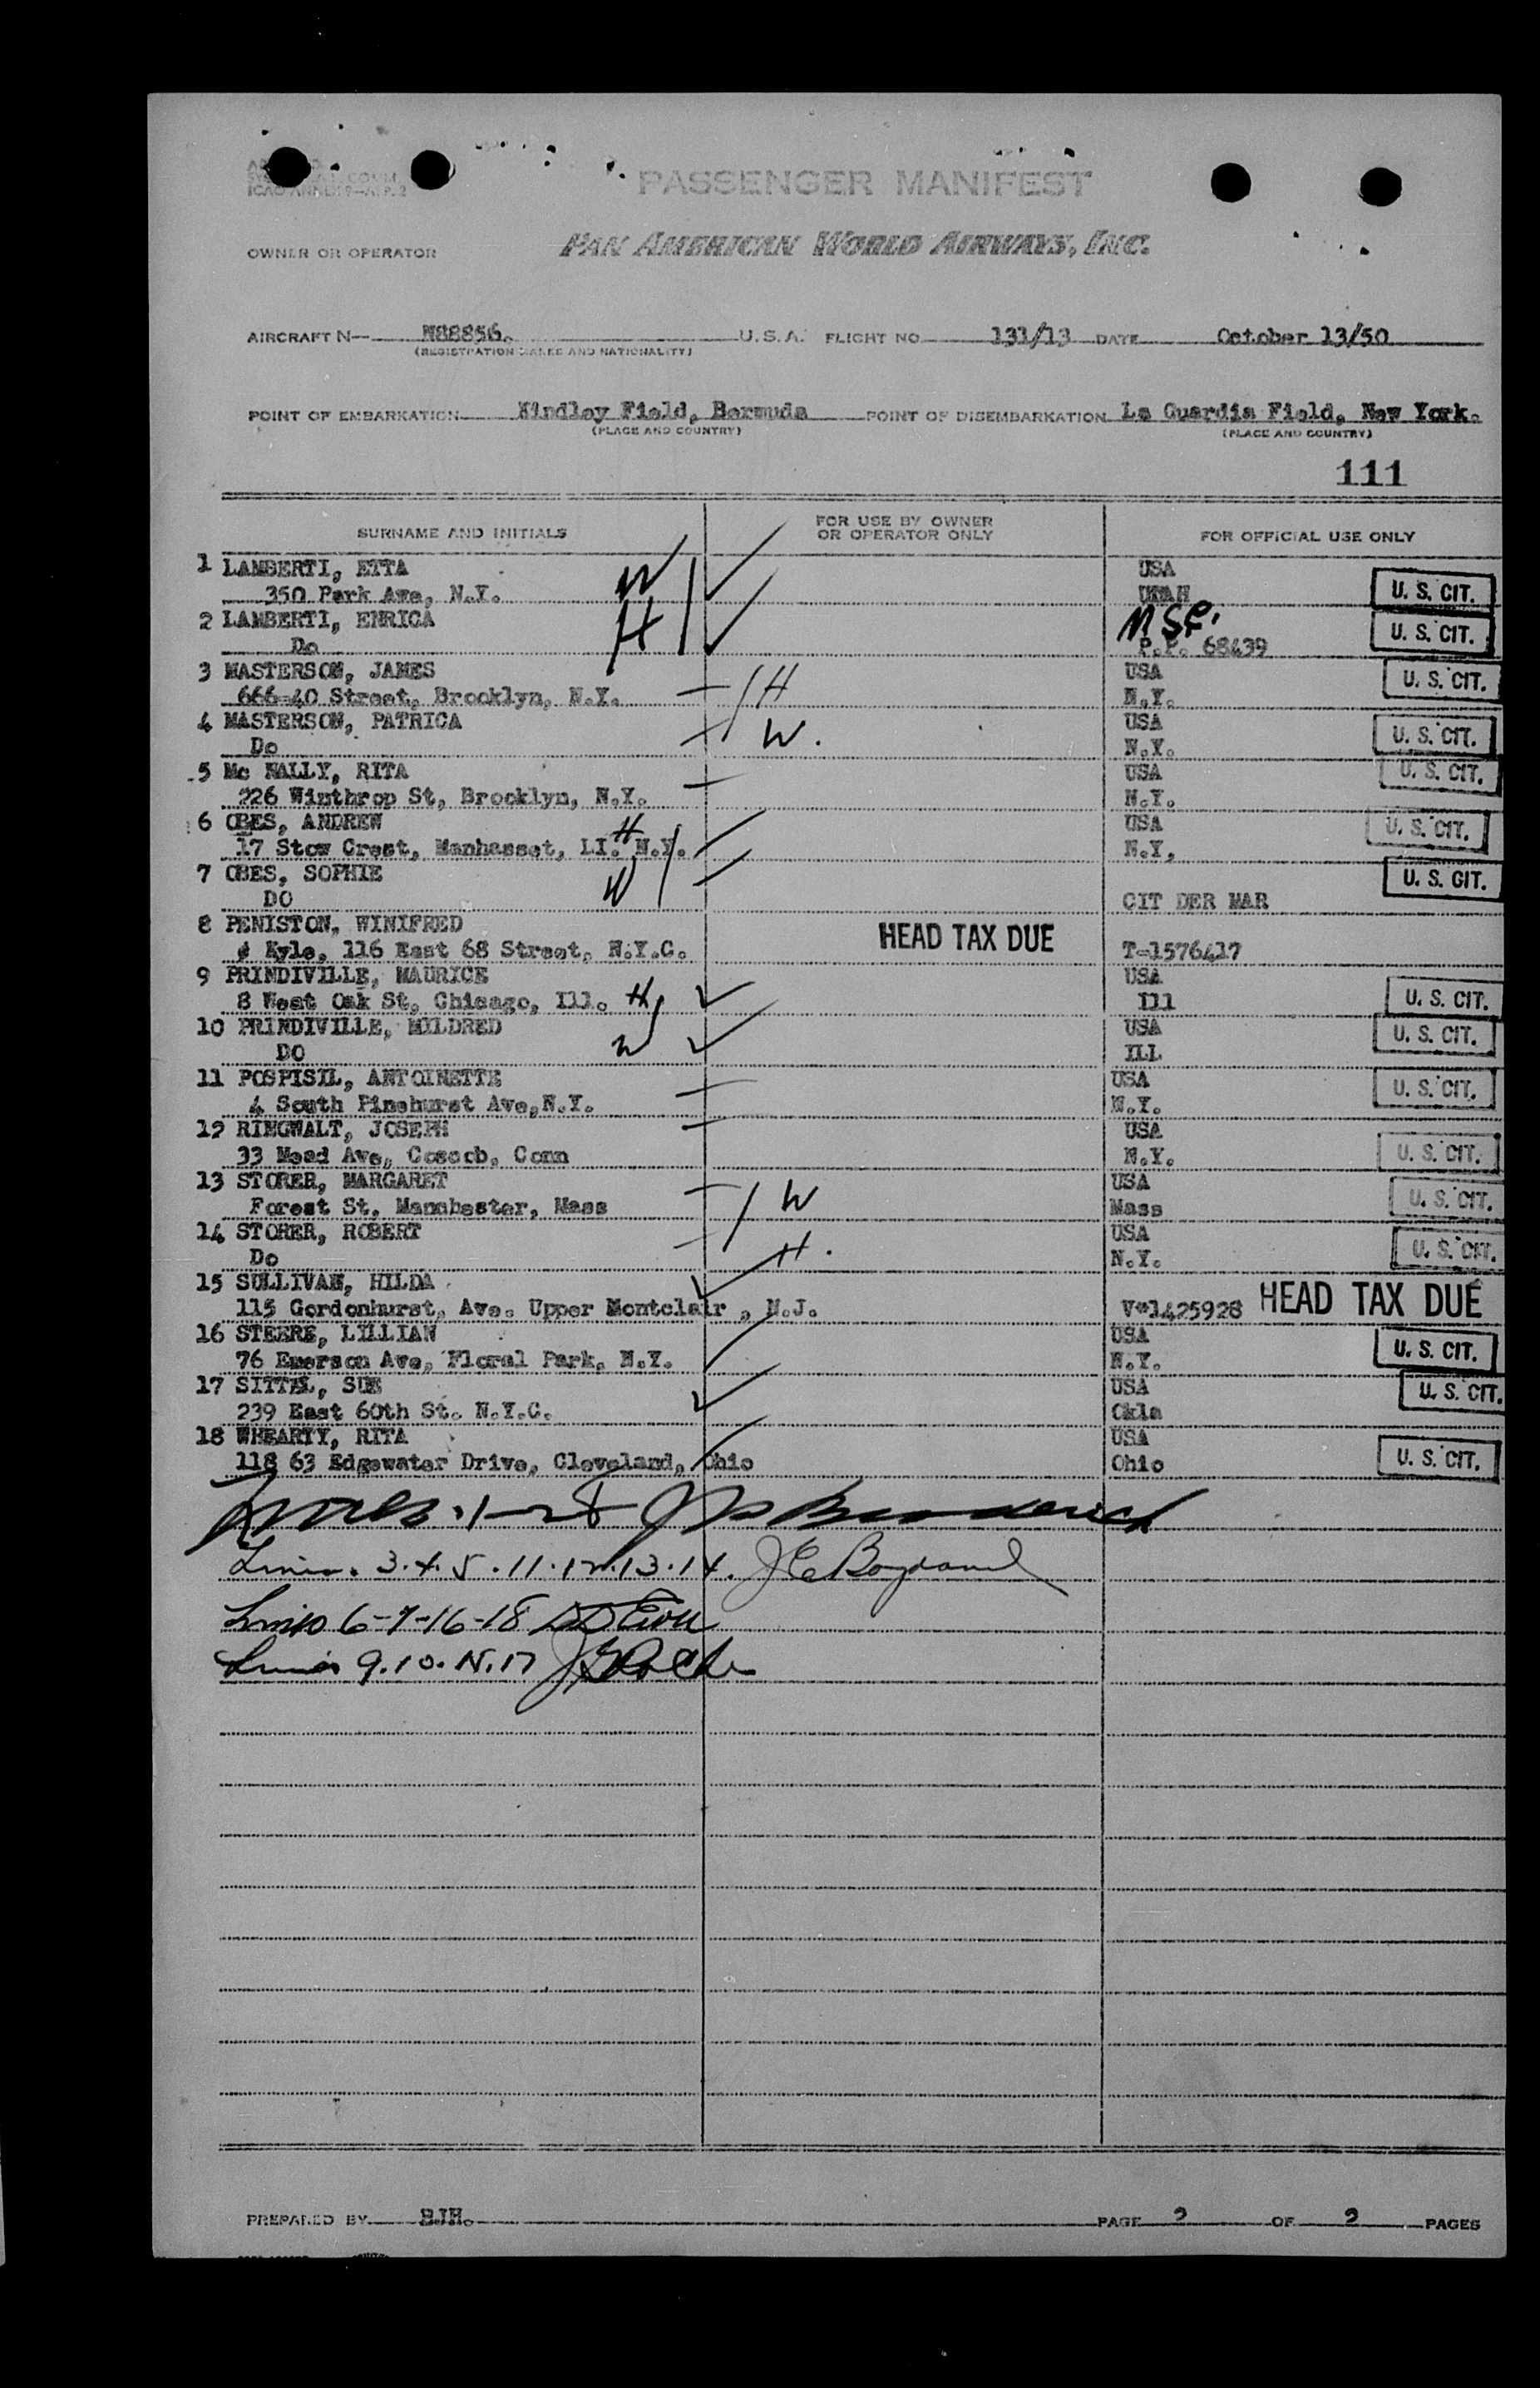 PASSENGER MANIFEST
OWNER OR OPERATOR PAN AMERICAN WORLD AIRWAYS, INC.
AIRCRAFT N— N88856. U.S.A. FLIGHT NO 131/13 DATE October 13/50
(REGISTRATION MARKS AND NATIONALITY)
POINT OF EMBARKATION Kindley Field, Bermuda POINT OF DISEMBARKATION La Guardia Field, New York.
(PLACE AND COUNTRY) (PLACE AND COUNTRY)
111
SURNAME AND INITIALS FOR USE BY OWNER OR OPERATOR ONLY FOR OFFICIAL USE ONLY
1 LAMBERTI, ETTA USA
350 Park Ave, N.Y. W UTAH U. S. CIT.
2 LAMBERTI, ENRICA H
Do P.P. 68439 U. S. CIT.
3 MASTERSON, JAMES USA
666-40 Street, Brooklyn, N.Y. H N.Y. U. S. CIT.
4 MASTERSON, PATRICA USA
Do W. N.Y. U. S. CIT.
5 Mc NALLY, RITA USA U. S. CIT.
226 Winthrop St, Brooklyn, N.Y. N.Y.
6 OBES, ANDREW H USA U. S. CIT.
17 Stow Crest, Manhasset, LI. N.Y. N.Y,
7 OBES, SOPHIE U. S. CIT.
DO W CIT DER MAR
8 PENISTON, WINIFRED HEAD TAX DUE
Kyle, 116 East 68 Street, N.Y.C. T-1576417
9 PRINDIVILLE, MAURICE USA
8 West Oak St, Chicago, Ill. H Ill U. S. CIT.
10 PRINDIVILLE, MILDRED USA U. S. CIT.
DO W ILL
11 POSPISIL, ANTOINETTE USA U. S. CIT.
4 South Pinehurst Ave,N.Y. N.Y.
12 RINGWALT, JOSEPH USA
33 Mead Ave, Coscob, Conn N.Y. U. S. CIT.
13 STORER, MARGARET W USA
Forest St, Manchester, Mass Mass U. S. CIT.
14 STORER, ROBERT USA
Do H. N.Y. U. S. CIT.
15 SULLIVAN, HILDA HEAD TAX DUE
115 Gordonhurst, Ave. Upper Montclair , N.J. V*1425928
16 STEERE, LILLIAN USA
76 Emerson Ave, Floral Park, N.Y. N.Y. U. S. CIT.
17 SITTEL, SUE USA U. S. CIT.
239 East 60th St. N.Y.C. Okla
18 WHEARTY, RITA USA
118 63 Edgewater Drive, Cleveland, Ohio Ohio U. S. CIT.
Lines 1-2-8
Lines. 3.4.5.11.12.13.14.
Lines 6-7-16-18
Lines 9.10.15.17
PREPARED BY PAGE 2 OF 2 PAGES